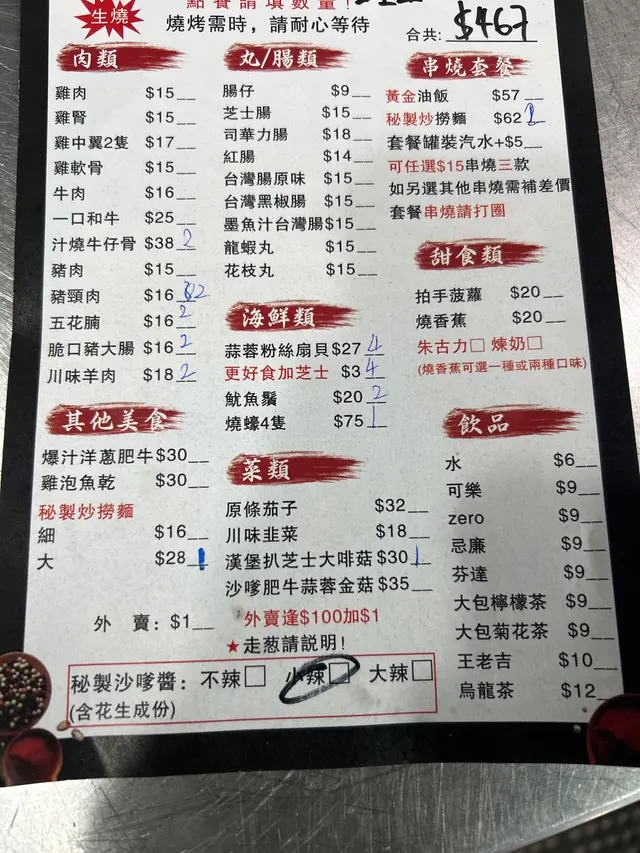 生燒
點餐請填數量!
燒烤需時，請耐心等待
合共: $467
肉類
雞肉 $15
雞腎 $15
雞中翼2隻 $17
雞軟骨 $15
牛肉 $16
一口和牛 $25
汁燒牛仔骨 $38 2
豬肉 $15
豬頸肉 $16 2
五花腩 $16 2
脆口豬大腸 $16 2
川味羊肉 $18 2
其他美食
爆汁洋蔥肥牛 $30
雞泡魚乾 $30
秘製炒撈麵
細 $16
大 $28 1
外 賣：$1
丸/腸類
腸仔 $9
芝士腸 $15
司華力腸 $18
紅腸 $14
台灣腸原味 $15
台灣黑椒腸 $15
墨魚汁台灣腸 $15
龍蝦丸 $15
花枝丸 $15
海鮮類
蒜蓉粉絲扇貝 $27 4
更好食加芝士 $3 4
魷魚鬚 $20 2
燒蠔4隻 $75 1
菜類
原條茄子 $32
川味韭菜 $18
漢堡扒芝士大啡菇 $30 1
沙嗲肥牛蒜蓉金菇 $35
外賣逢$100加$1
★走葱請説明!
串燒套餐
黃金油飯 $57
秘製炒撈麵 $62
套餐罐裝汽水+$5
可任選$15串燒三款
如另選其他串燒需補差價
套餐串燒請打圈
甜食類
拍手菠蘿 $20
燒香蕉 $20
朱古力□ 煉奶□
(燒香蕉可選一種或兩種口味)
飲品
水 $6
可樂 $9
zero $9
忌廉 $9
芬達 $9
大包檸檬茶 $9
大包菊花茶 $9
王老吉 $10
烏龍茶 $12
秘製沙嗲醬：不辣□ 小辣□ 大辣□
(含花生成份)